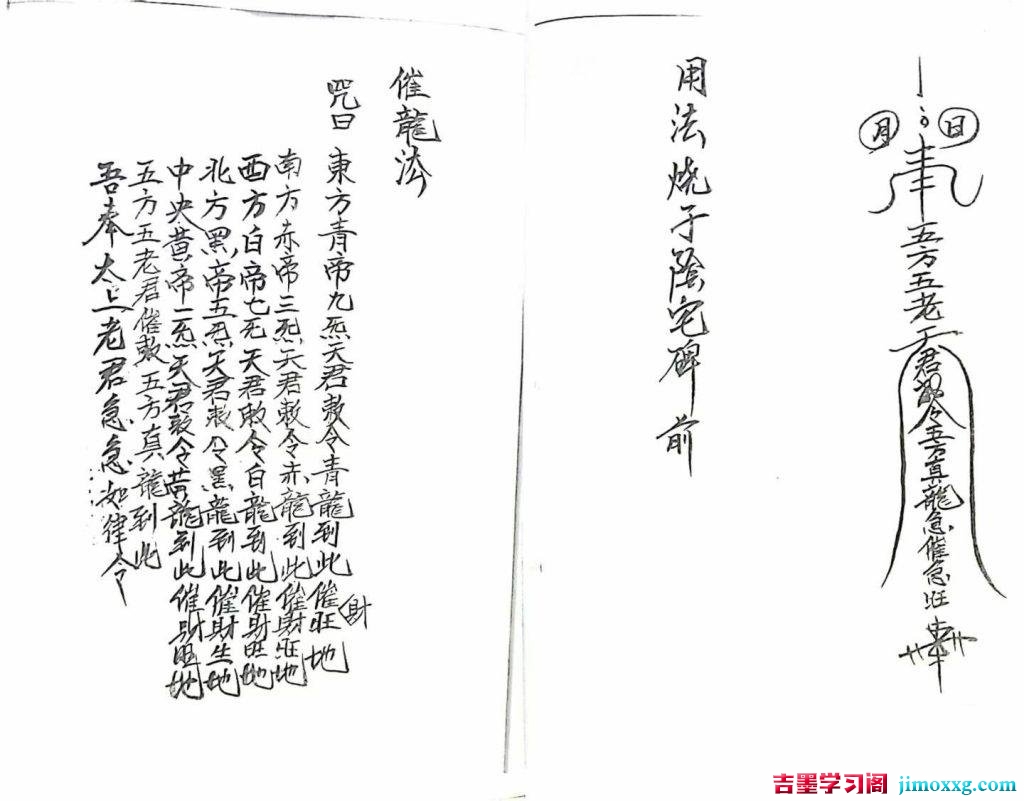 日
月
奉
五方五老天君敕令五方真龍急催急旺
用法烧于陰宅碑前
催龍法
咒曰
東方青帝九炁天君敕令青龍到此催財旺地
南方赤帝三炁天君敕令赤龍到此催財旺地
西方白帝七炁天君敕令白龍到此催財旺地
北方黑帝五炁天君敕令黑龍到此催財生地
中央黄帝一炁天君敕令黄龍到此催財旺地
五方五老君催敕五方真龍到此
吾奉太上老君急急如律令
吉墨学习阁 jimoxxg.com